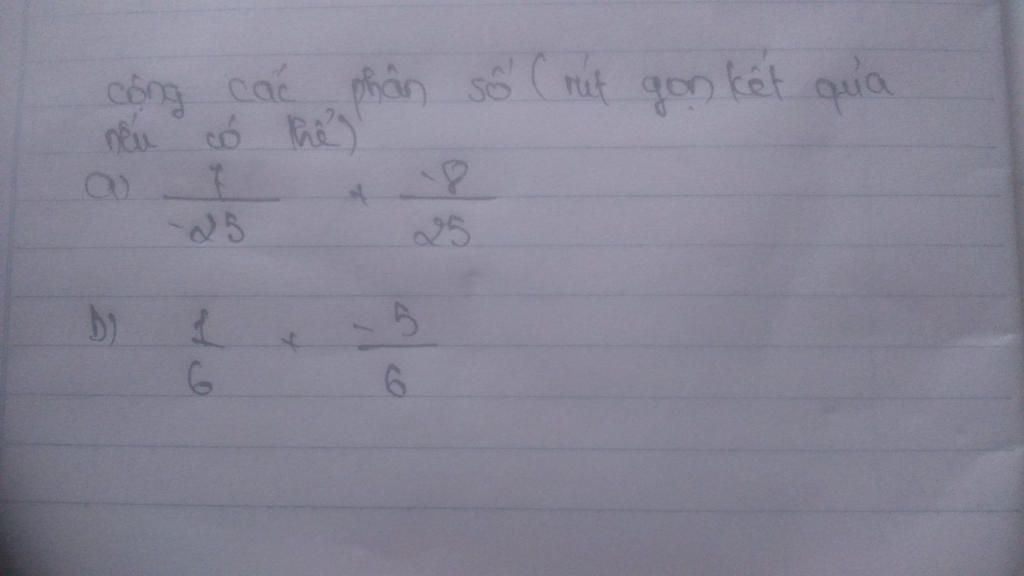 cộng các phân số (rút gọn kết qủa
nếu có thể)
a) 7/-25 + -8/25
b) 1/6 + -5/6